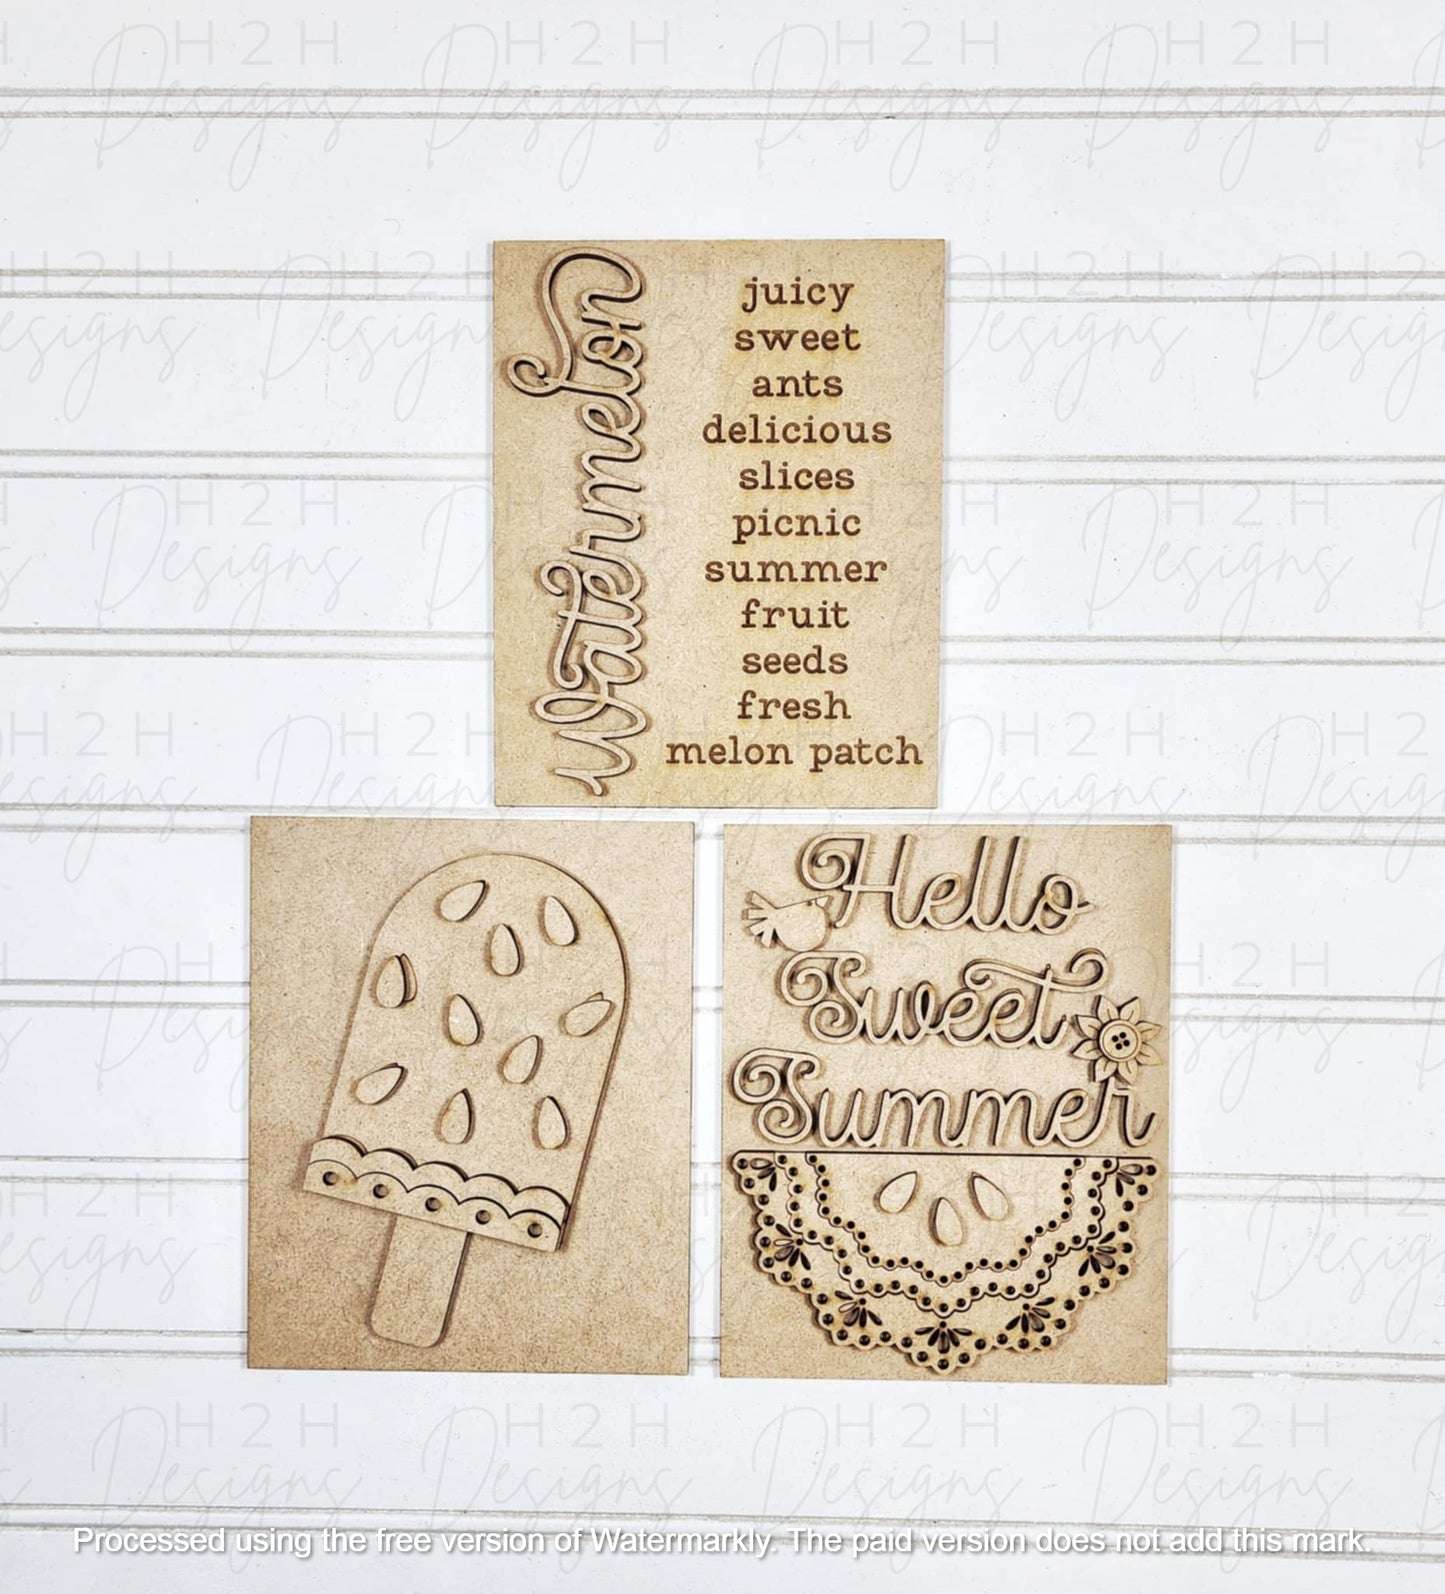 Watermelon
juicy
sweet
ants
delicious
slices
picnic
summer
fruit
seeds
fresh
melon patch
Hello
Sweet
Summer
H2H Designs
Processed using the free version of Watermarkly. The paid version does not add this mark.